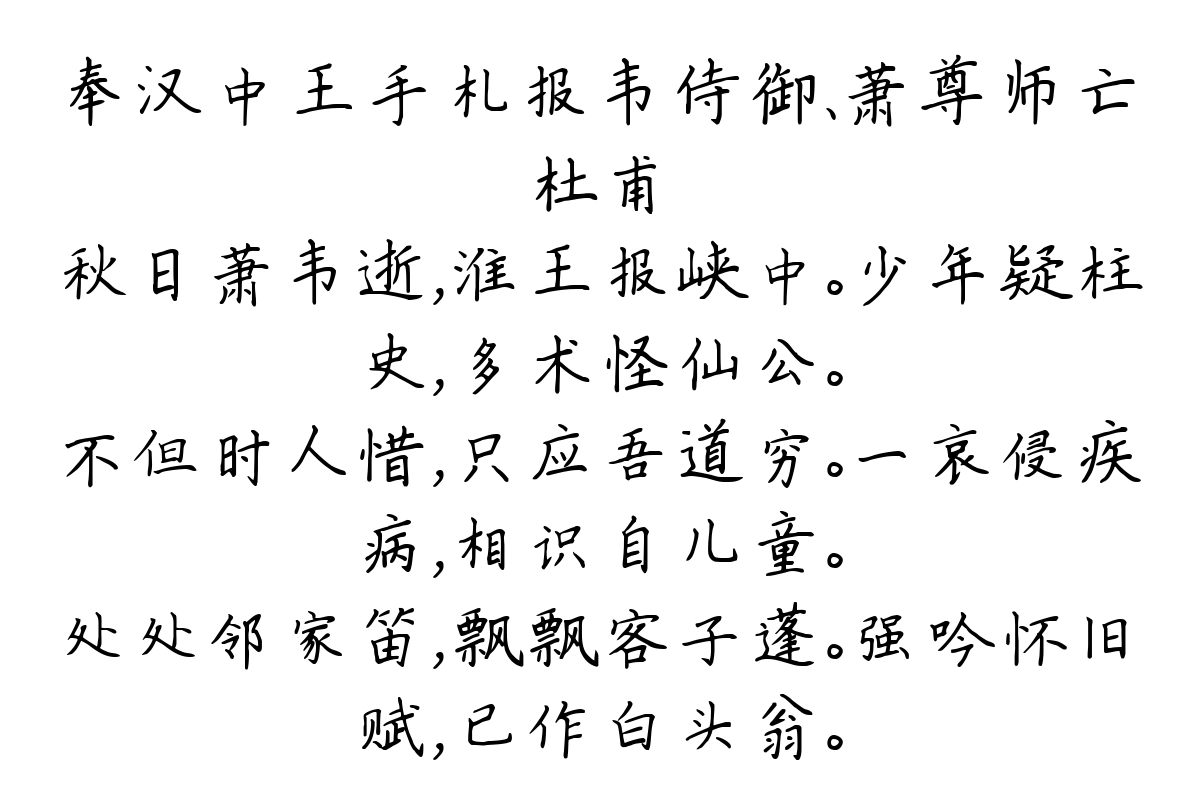 奉汉中王手札报韦侍御、萧尊师亡
杜甫
秋日萧韦逝,淮王报峡中。少年疑柱
史,多术怪仙公。
不但时人惜,只应吾道穷。一哀侵疾
病,相识自儿童。
处处邻家笛,飘飘客子蓬。强吟怀旧
赋,已作白头翁。